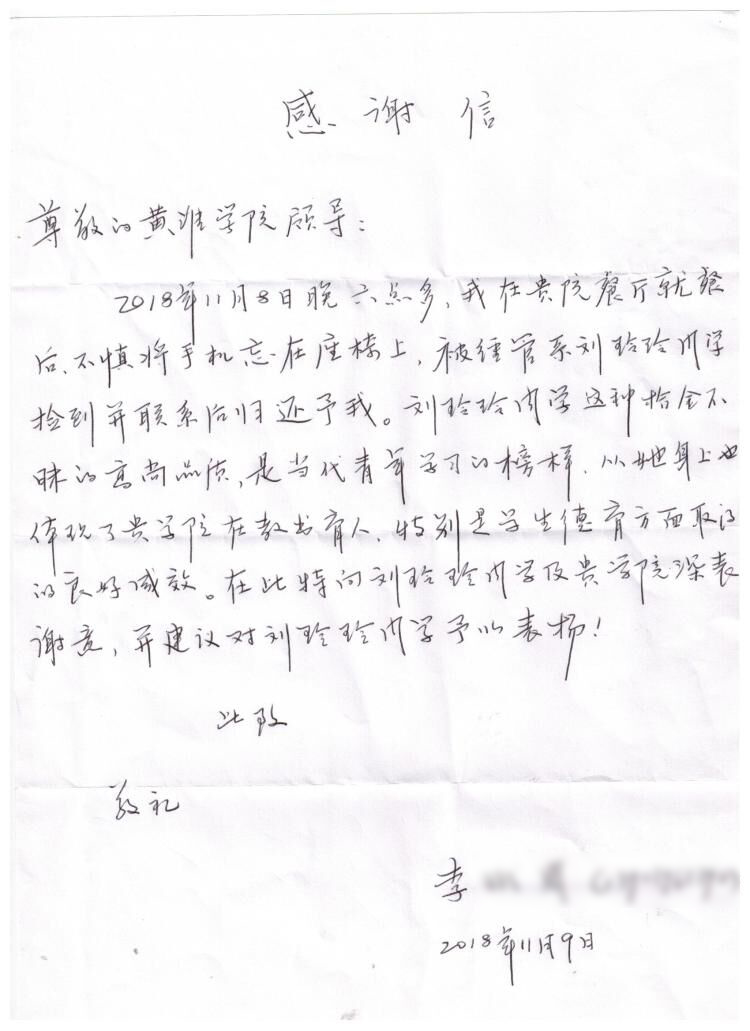 感谢信
尊敬的黄淮学院领导：
2018年11月8日晚六点多，我在贵院餐厅就餐
后，不慎将手机忘在座椅上，被经管系刘玲玲同学
捡到并联系后归还予我。刘玲玲同学这种拾金不
昧的高尚品质，是当代青年学习的榜样，从她身上也
体现了贵学院在教书育人，特别是学生德育方面取得
的良好成效。在此特向刘玲玲同学及贵学院深表
谢意，并建议对刘玲玲同学予以表扬！
此致
敬礼
李
2018年11月9日